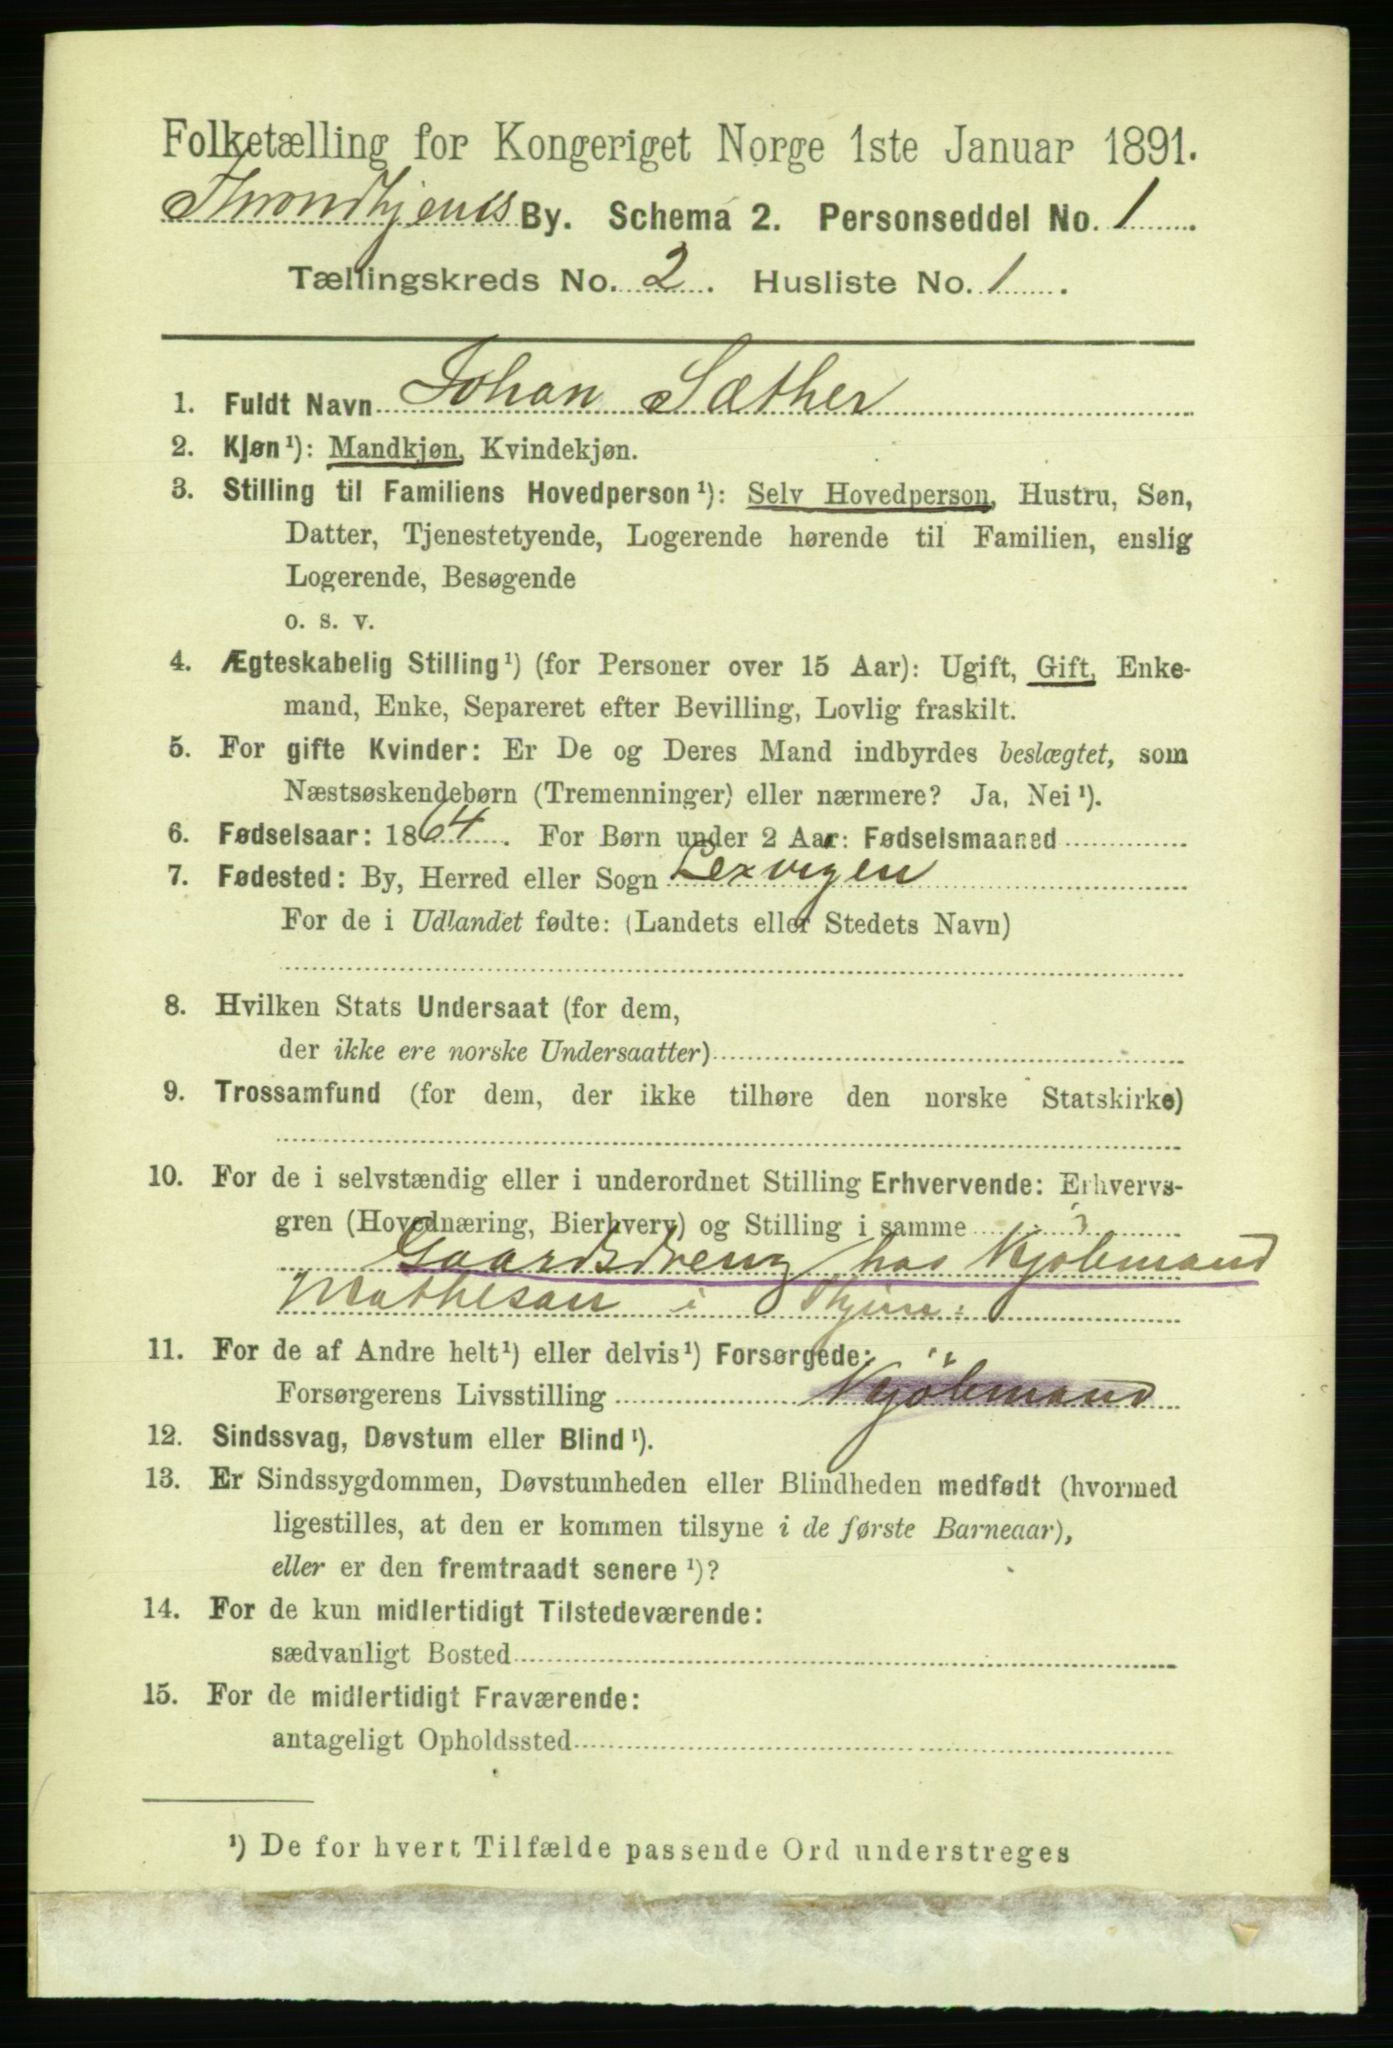 Folketælling for Kongeriget Norge 1ste Januar 1891.
Throndhjems By. Schema 2. Personseddel No. 1
Tællingskreds No. 2. Husliste No. 1.
1. Fuldt Navn Johan Sæther
2. Kjøn¹): Mandkjøn, Kvindekjøn.
3. Stilling til Familiens Hovedperson¹): Selv Hovedperson, Hustru, Søn,
Datter, Tjenestetyende, Logerende hørende til Familien, enslig
Logerende, Besøgende
o. s. v.
4. Ægteskabelig Stilling¹) (for Personer over 15 Aar): Ugift, Gift, Enke-
mand, Enke, Separeret efter Bevilling, Lovlig fraskilt.
5. For gifte Kvinder: Er De og Deres Mand indbyrdes beslægtet, som
Næstsøskendebørn (Tremenninger) eller nærmere? Ja, Nei¹).
6. Fødselsaar: 1864. For Børn under 2 Aar: Fødselsmaaned
7. Fødested: By, Herred eller Sogn Lexvigen
For de i Udlandet fødte: (Landets eller Stedets Navn)
8. Hvilken Stats Undersaat (for dem,
der ikke ere norske Undersaatter)
9. Trossamfund (for dem, der ikke tilhøre den norske Statskirke)
10. For de i selvstændig eller i underordnet Stilling Erhvervende: Erhvervs-
gren (Hovednæring, Bierhverv) og Stilling i samme
Gaardsdreng hos Kjøbmand
Mathesan i Thjem:
11. For de af Andre helt¹) eller delvis¹) Forsørgede:
Forsørgerens Livsstilling Kjøbmand
12. Sindssvag, Døvstum eller Blind¹).
13. Er Sindssygdommen, Døvstumheden eller Blindheden medfødt (hvormed
ligestilles, at den er kommen tilsyne i de første Barneaar),
eller er den fremtraadt senere¹)?
14. For de kun midlertidigt Tilstedeværende:
sædvanligt Bosted
15. For de midlertidigt Fraværende:
antageligt Opholdssted
¹) De for hvert Tilfælde passende Ord understreges